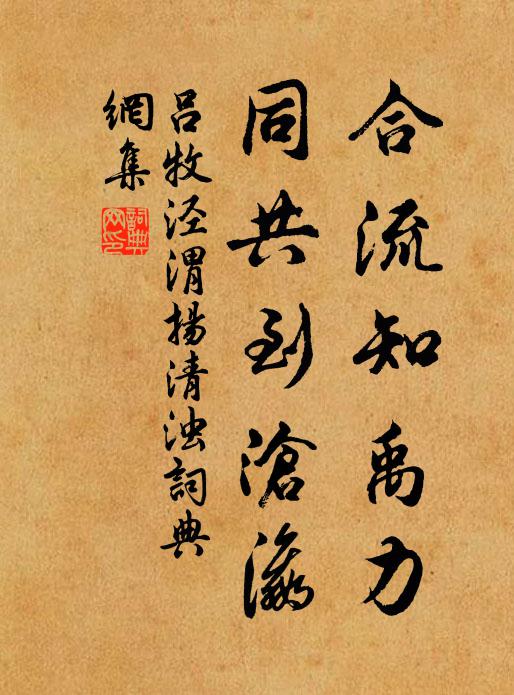 合流知禹力
同共到滄瀛
吕牧泾渭揚清浊詞典
網集
詞典
网印